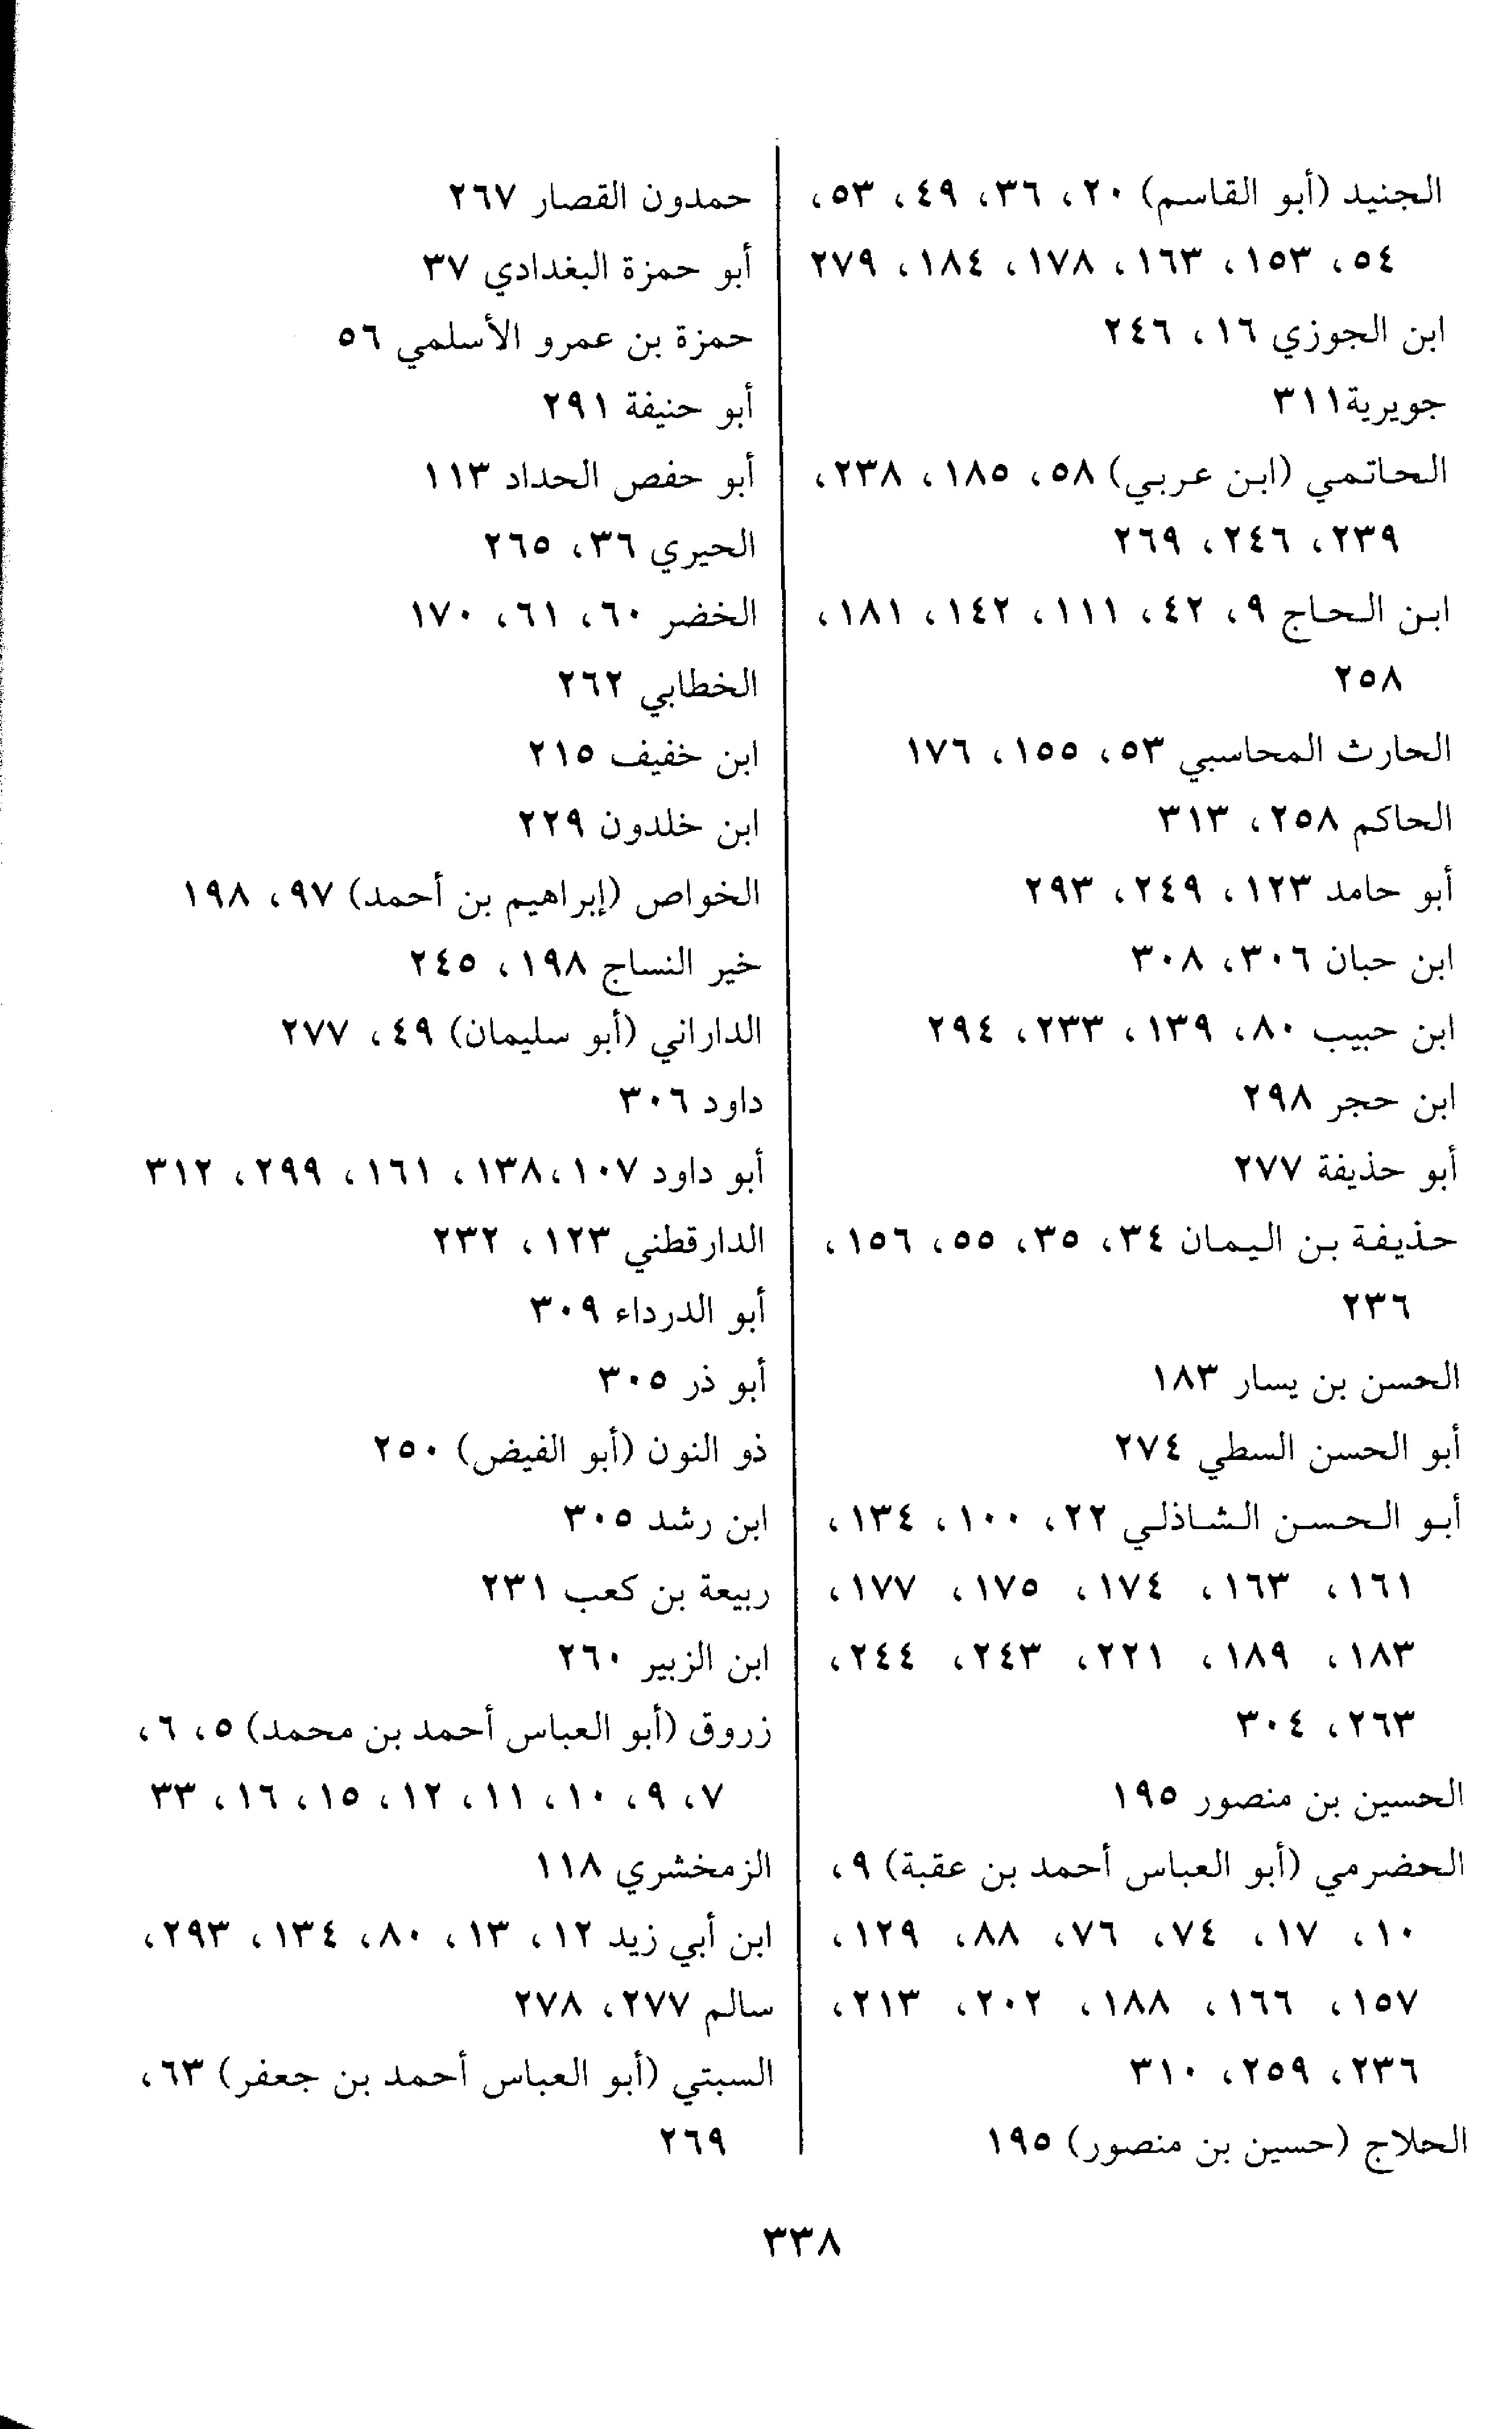 الجنيد (أبو القاسم) ٢٠، ٣٦، ٤٩، ٥٣،
٥٤، ١٥٣، ١٦٣، ١٧٨، ١٨٤، ٢٧٩
ابن الجوزي ١٦، ٢٤٦
جويرية٣١١
الحاتمي (ابن عربي) ٥٨، ١٨٥، ٢٣٨،
٢٣٩، ٢٤٦، ٢٦٩
ابن الحاج ٩، ٤٢، ١١١، ١٤٢، ١٨١،
٢٥٨
الحارث المحاسبي ٥٣، ١٥٥، ١٧٦
الحاكم ٢٥٨، ٣١٣
أبو حامد ١٢٣، ٢٤٩، ٢٩٣
ابن حبان ٣٠٦، ٣٠٨
ابن حبيب ٨٠، ١٣٩، ٢٣٣، ٢٩٤
ابن حجر ٢٩٨
أبو حذيفة ٢٧٧
حذيفة بن اليمان ٣٤، ٣٥، ٥٥، ١٥٦،
٢٣٦
الحسن بن يسار ١٨٣
أبو الحسن السطي ٢٧٤
أبو الحسن الشاذلي ٢٢، ١٠٠، ١٣٤،
١٦١، ١٦٣، ١٧٤، ١٧٥، ١٧٧،
١٨٣، ١٨٩، ٢٢١، ٢٤٣، ٢٤٤،
٢٦٣، ٣٠٤
الحسين بن منصور ١٩٥
الحضرمي (أبو العباس أحمد بن عقبة) ٩،
١٠، ١٧، ٧٤، ٧٦، ٨٨، ١٢٩،
١٥٧، ١٦٦، ١٨٨، ٢٠٢، ٢١٣،
٢٣٦، ٢٥٩، ٣١٠
الحلاج (حسين بن منصور) ١٩٥
حمدون القصار ٢٦٧
أبو حمزة البغدادي ٣٧
حمزة بن عمرو الأسلمي ٥٦
أبو حنيفة ٢٩١
أبو حفص الحداد ١١٣
الحيري ٣٦، ٢٦٥
الخضر ٦٠، ٦١، ١٧٠
الخطابي ٢٦٢
ابن خفيف ٢١٥
ابن خلدون ٢٢٩
الخواص (إبراهيم بن أحمد) ٩٧، ١٩٨
خير النساج ١٩٨، ٢٤٥
الداراني (أبو سليمان) ٤٩، ٢٧٧
داود ٣٠٦
أبو داود ١٠٧،١٣٨، ١٦١، ٢٩٩، ٣١٢
الدارقطني ١٢٣، ٢٣٢
أبو الدرداء ٣٠٩
أبو ذر ٣٠٥
ذو النون (أبو الفيض) ٢٥٠
ابن رشد ٣٠٥
ربيعة بن كعب ٢٣١
ابن الزبير ٢٦٠
زروق (أبو العباس أحمد بن محمد) ٥، ٦،
٧، ٩، ١٠، ١١، ١٢، ١٥، ١٦، ٣٣
الزمخشري ١١٨
ابن أبي زيد ١٢، ١٣، ٨٠، ١٣٤، ٢٩٣،
سالم ٢٧٧، ٢٧٨
السبتي (أبو العباس أحمد بن جعفر) ٦٣،
٢٦٩
٣٣٨